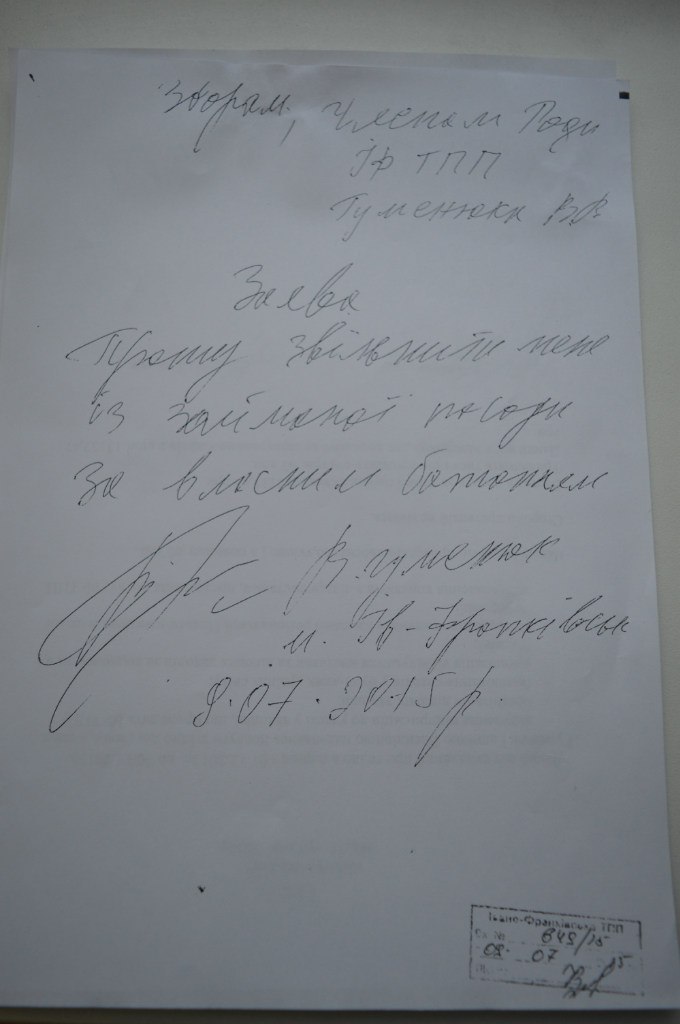 Зборам, Членам Ради
ІФ ТПП
Гуменюка В.В
Заява
Прошу звільнити мене
із займаної посади
За власним бажанням
В.Гуменюк
м. Ів-Франківськ
8.07.2015р.
Івано-Франківська ТПП
Вх. №
08 07 15